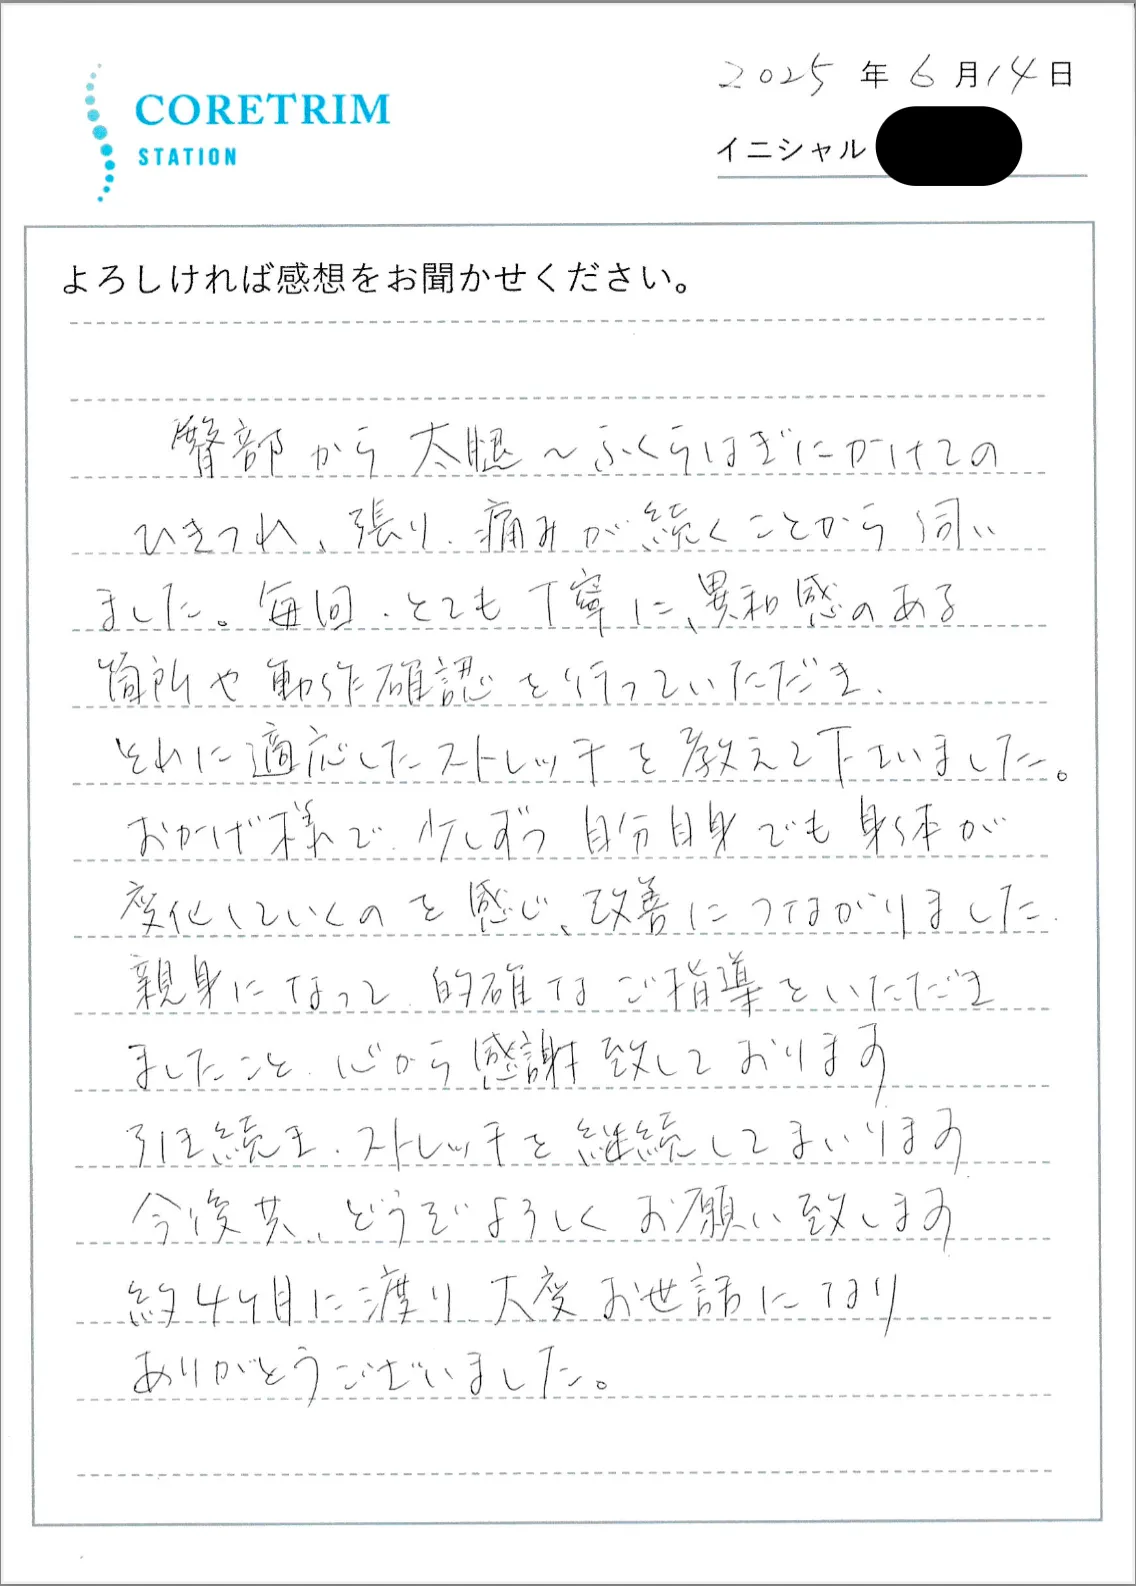 CORETRIM
STATION
2025 年 6 月 14 日
イニシャル
よろしければ感想をお聞かせください。
臀部から 太腿〜ふくらはぎにかけての
ひきつれ、張り、痛みが続くことから伺い
ました。毎回、とても丁寧に、異和感のある
箇所や動作確認を行っていただき、
それに適応したストレッチを教えて下さいました。
おかげ様で、少しずつ自分自身でも身体が
変化していくのを感じ、改善につながりました。
親身になって、的確なご指導をいただき
ましたこと、心から感謝致しております
引き続き、ストレッチを継続してまいります
今後共、どうぞよろしくお願い致します
約4ヶ月に渡り、大変お世話になり
ありがとうございました。